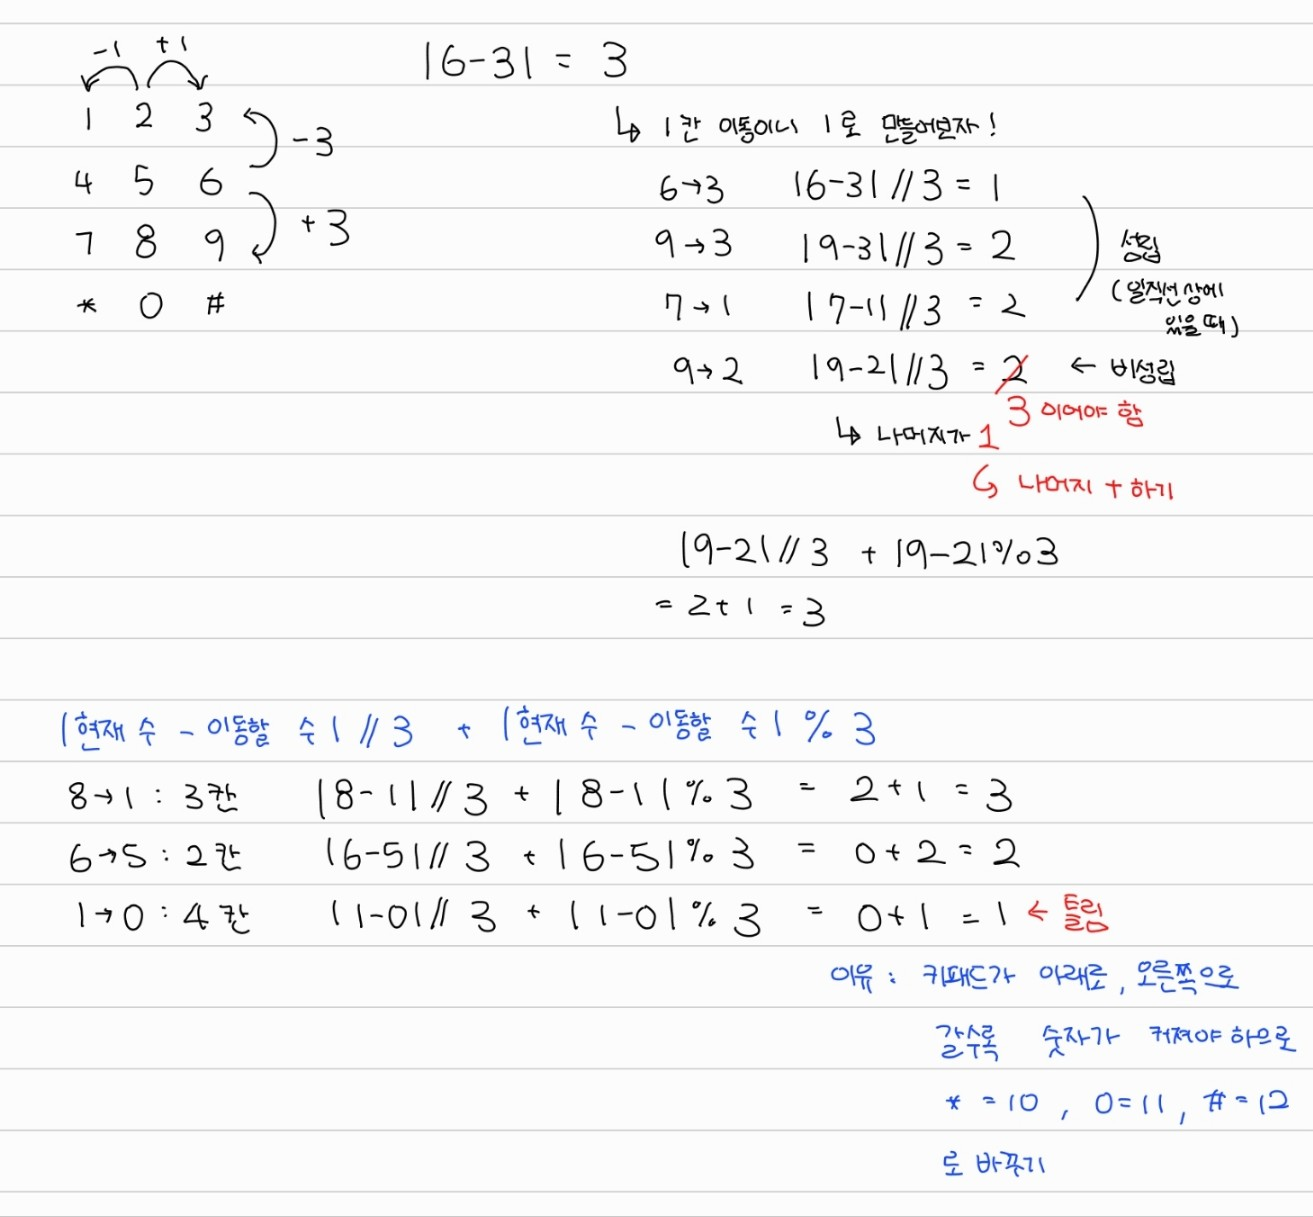 -1 +1
1 2 3
-3
4 5 6
+3
7 8 9
* 0 #
|6-3| = 3
↳ 1칸 이동이니 1로 만들어보자!
6→3 |6-3|//3 = 1
9→3 |9-3|//3 = 2
7→1 |7-1|//3 = 2
성립
(일직선 상에
있을 때)
9→2 |9-2|//3 = 2 ← 비성립
3 이어야 함
↳ 나머지가 1
↳ 나머지 + 하기
|9-2|//3 + |9-2|%3
= 2+1 = 3
|현재 수 - 이동할 수|//3 + |현재 수 - 이동할 수|%3
8→1 : 3칸 |8-1|//3 + |8-1|%3 = 2+1 = 3
6→5 : 2칸 |6-5|//3 + |6-5|%3 = 0+2 = 2
1→0 : 4칸 |1-0|//3 + |1-0|%3 = 0+1 = 1 ← 틀림
이유 : 키패드가 아래로, 오른쪽으로
갈수록 숫자가 커져야 하므로
* = 10 , 0=11 , # = 12
로 바꾸기